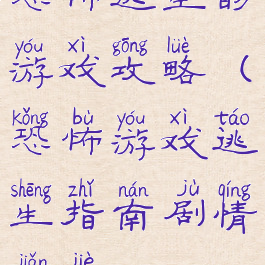 yóu xì gōng lüè
游戏攻略（
kǒng bù yóu xì táo
恐怖游戏逃
shēng zhǐ nán jù qíng
生指南剧情
jiǎn jiè